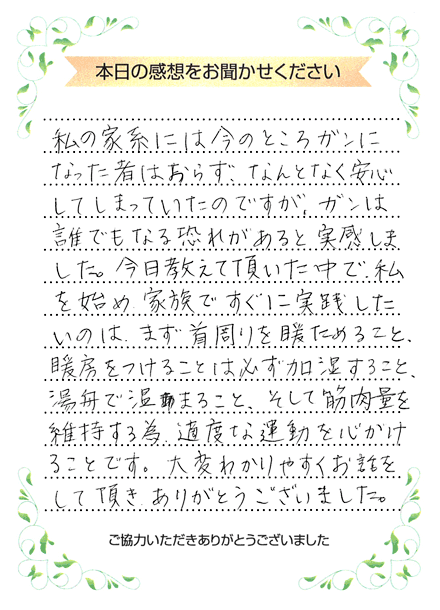 本日の感想をお聞かせください
私の家系には今のところガンに
なった者はおらず、なんとなく安心
してしまっていたのですが、ガンは
誰でもなる恐れがあると実感しま
した。今日教えて頂いた中で、私
を始め、家族ですぐに実践した
いのは、まず首周りを暖ためること、
暖房をつけることは必ず加湿すること、
湯舟で温まること、そして筋肉量を
維持する為、適度な運動を心がけ
ることです。大変わかりやすくお話を
して頂き、ありがとうございました。
ご協力いただきありがとうございました